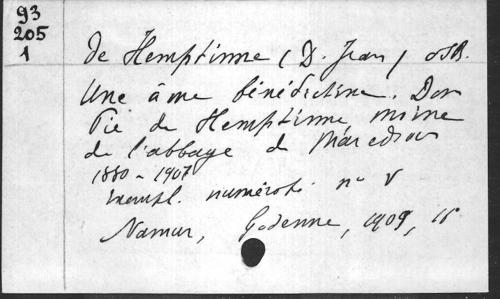 93
205
1
de Hemptinne (D. Jean) OSB.
Une âme bénédictine. Dom
Pie de Hemptinne moine
de l'abbaye de Maredsous
1880-1907
Exempl. numéroté n° V
Namur, Godenne, 1909,